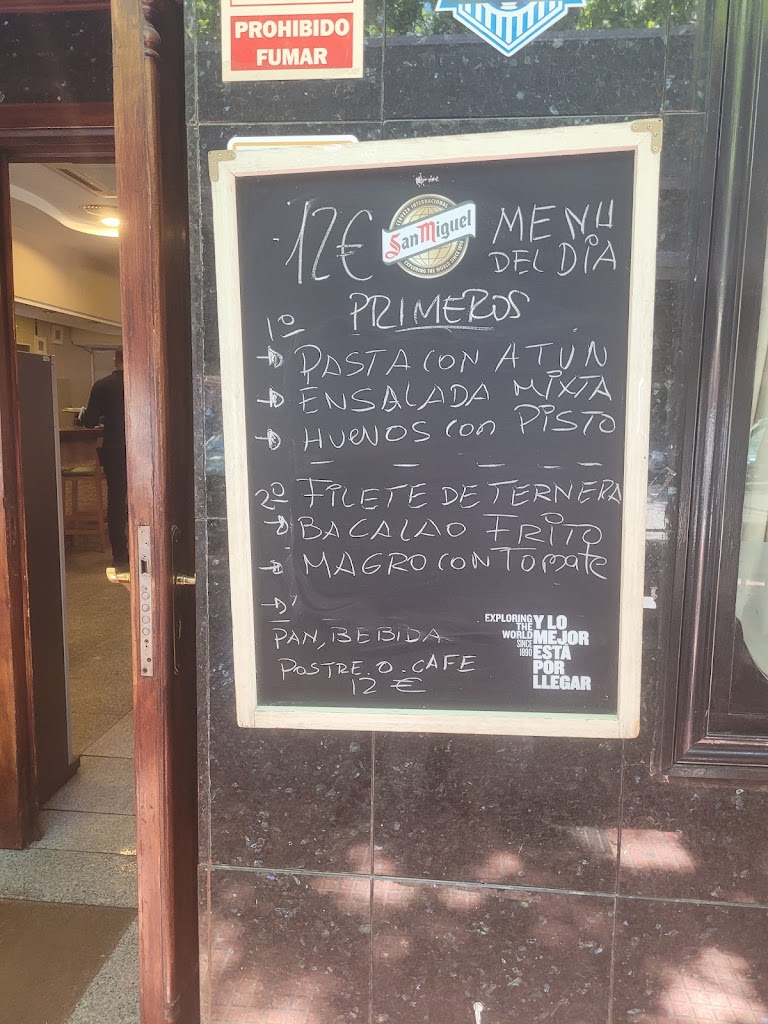 PROHIBIDO
FUMAR
12€
CERVEZA INTERNACIONAL
San Miguel
EXPLORING THE WORLD SINCE 1890
MENU
DEL DIA
PRIMEROS
1º
PASTA CON ATUN
ENSALADA MIXTA
HUEVOS CON PISTO
2º FILETE DE TERNERA
BACALAO FRITO
MAGRO CON TOMATE
PAN, BEBIDA
POSTRE. O. CAFE
12 €
EXPLORING
THE
WORLD
SINCE
1890
Y LO
MEJOR
ESTÁ
POR
LLEGAR